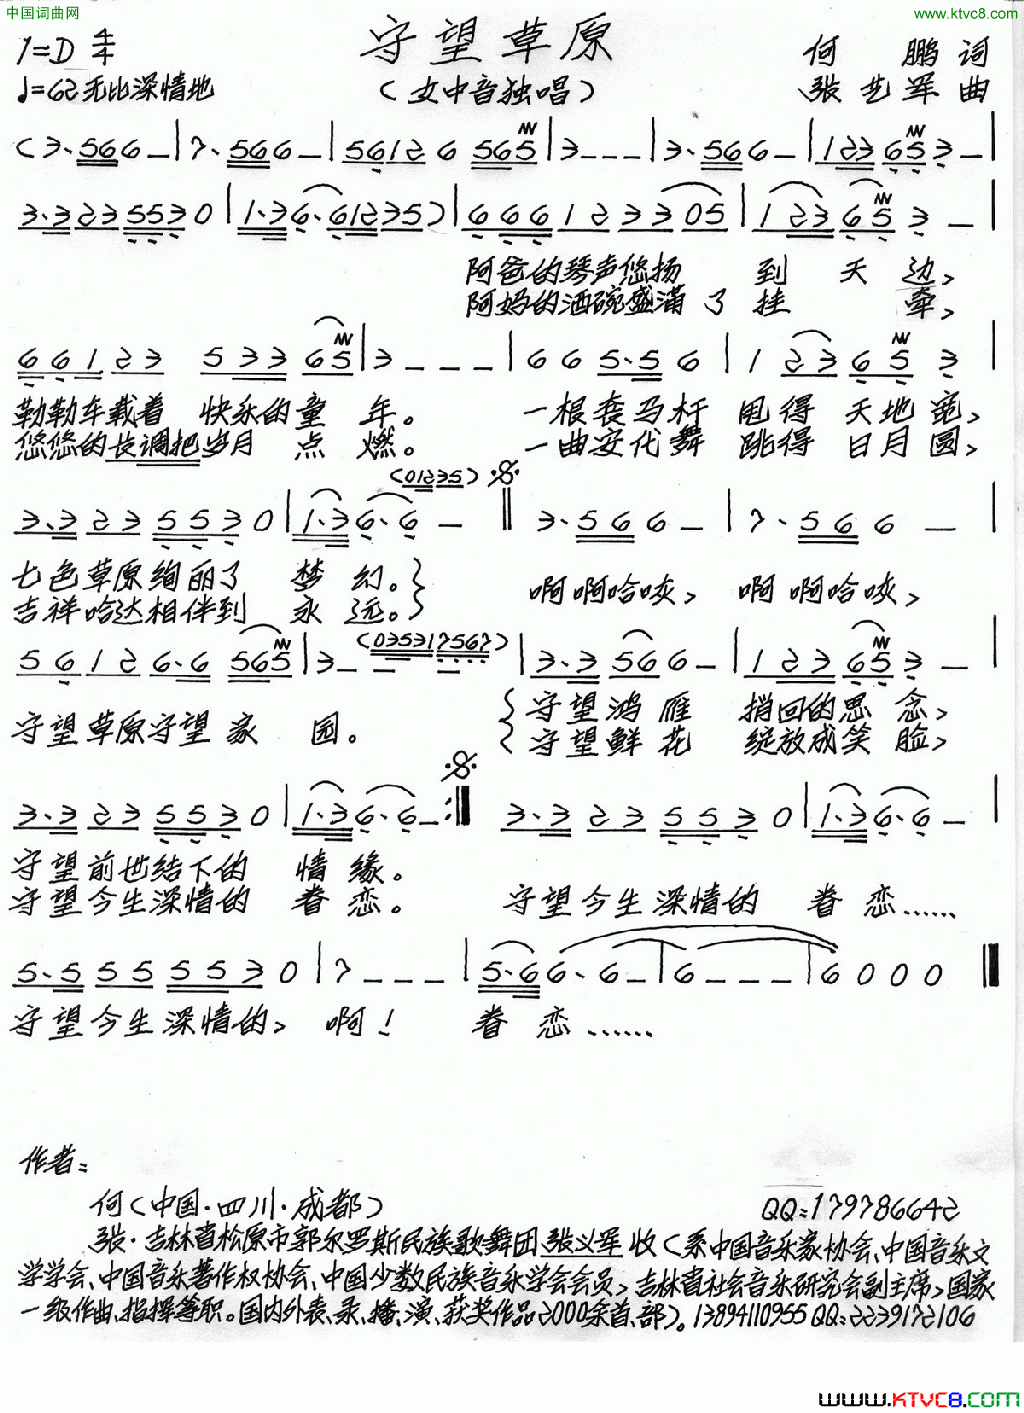 中国词曲网
www.ktvc8.com
守望草原
1=D 4/4
何 鹏 词
♩=62 无比深情地
(女中音独唱)
张艺军 曲
(3·566–|7·566–|56126 565|3---|3·566–|123653–|
3·323553 0|1·36·61235)|666123305|123653–|
阿爸的琴声悠扬 到 天 边,
阿妈的酒碗盛满 了 挂 牵,
66123 53365|3---|665·56|123653|
勒勒车载着 快乐的童 年。 一根套马杆 甩得 天地宽,
悠悠的长调把岁月 点 燃。 一曲安代舞 跳得 日月圆,
(01235)
3·3235530|1·36·6–‖3·566–|7·566–|
七色草原绚丽了 梦 幻。 啊啊哈咴, 啊 啊哈咴,
吉祥哈达相伴到 永 远。
(035317567)
56126·6565|3–|3·3566–|123653–|
守望草原守望家 园。 守望鸿雁 捎回的思 念,
守望鲜花 绽放成笑 脸,
3·3235530|1·36·6–:‖3·3235530|1·36·6–|
守望前世结下的 情 缘。
守望今生深情的 眷 恋。 守望今生深情的 眷 恋……
5·5555530|7---|5·66·6–|6---|6000‖
守望今生深情的, 啊! 眷 恋……
作者:
何(中国·四川·成都) QQ:179786642
张·吉林省松原市郭尔罗斯民族歌舞团张义军收(系中国音乐家协会、中国音乐文
学学会、中国音乐著作权协会、中国少数民族音乐学会会员,吉林省社会音乐研究会副主席,国家
一级作曲、指挥等职。国内外表、录、播、演、获奖作品2000余首、部)。13894110955 QQ:2239172106
www.KTVC8.com